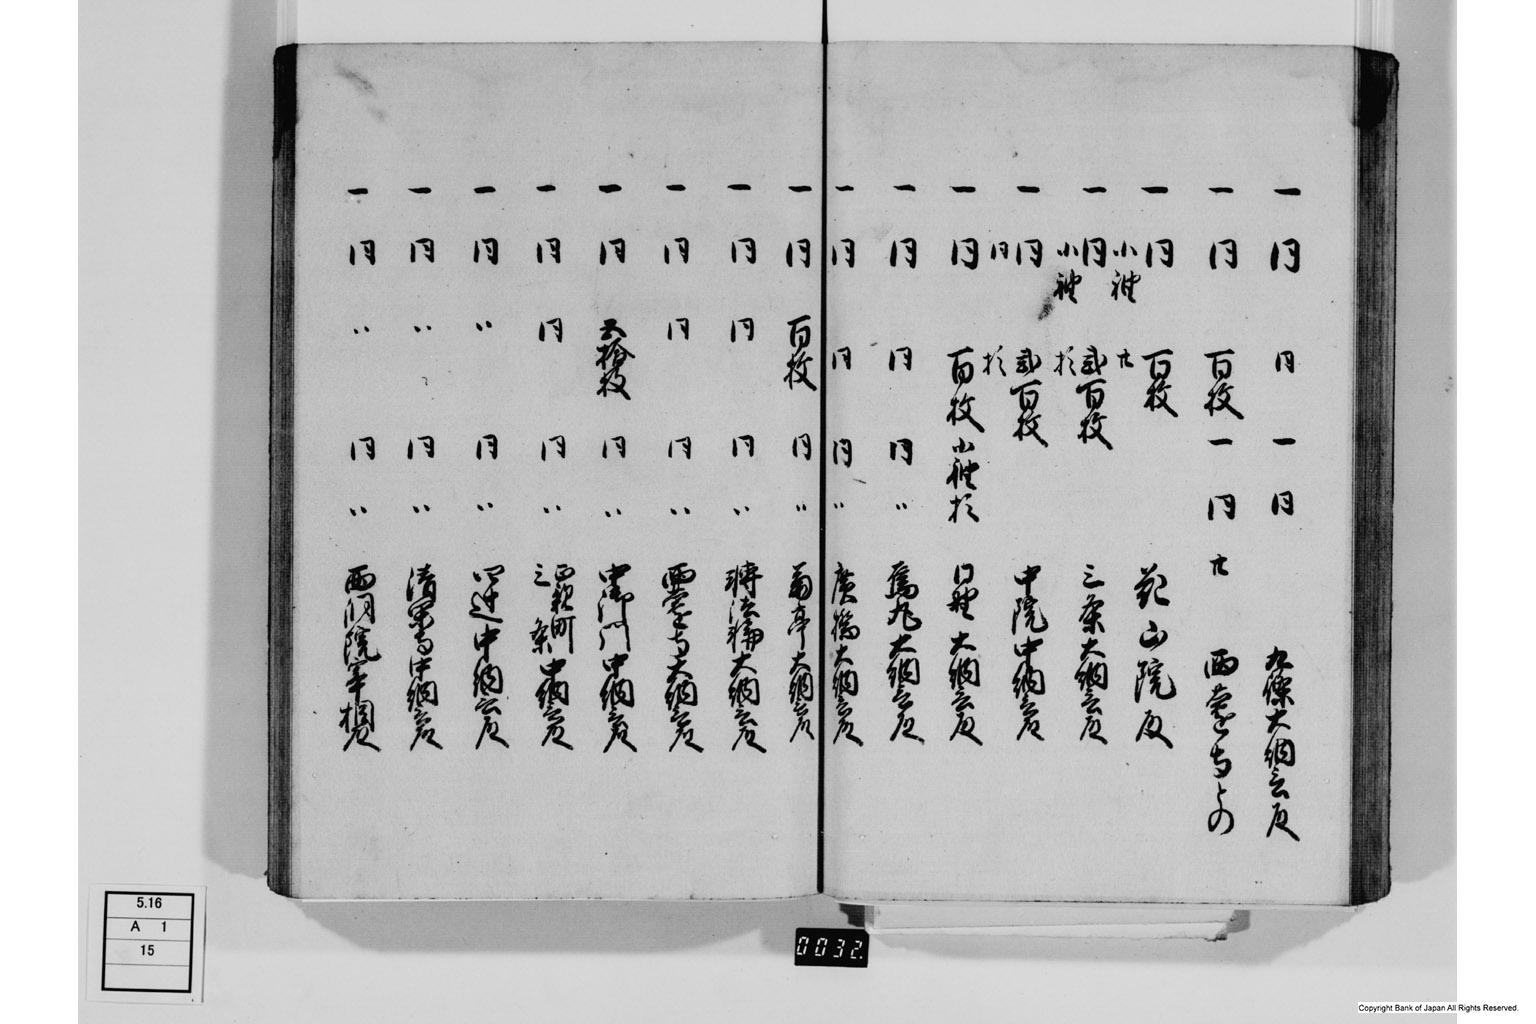 一 同 同 一同 九條大納言殿
一 同 百枚 一同 廿 西
一 同 百枚 花山院殿
小袖 廿
一 同 弐百枚 三条大納言殿
小袖
一 同 弐百枚 中院中納言殿
同
一 同 百枚 小袖 日野大納言殿
一 同 同 同 〃 烏丸大納言殿
一 同 同 同 〃 廣橋大納言殿
一 同 百枚 同 〃 菊亭大納言殿
一 同 同 同 〃 轉法輪大納言殿
一 同 同 同 〃 西 大納言殿
一 同 五拾枚 同 〃 中御門中納言殿
一 同 同 同 〃 正親町三条中納言殿
一 同 〃 同 〃 四辻中納言殿
一 同 〃 同 〃 清閑寺中納言殿
一 同 〃 同 〃 西洞院宰相殿
5.16
A 1
15
0032
Copyright Bank of Japan All Rights Reserved.